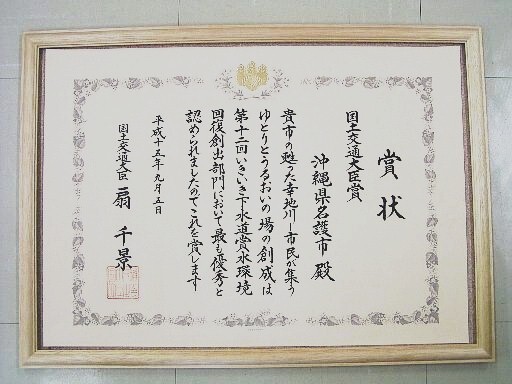 賞状
国土交通大臣賞
沖縄県名護市殿
貴市の甦った幸地川ー市民が集う
ゆとりとうるおいの場の創成は
第十二回いきいき下水道賞水環境
回復創出部門において最も優秀と
認められましたのでこれを賞します
平成十五年九月五日
国土交通大臣 扇千景